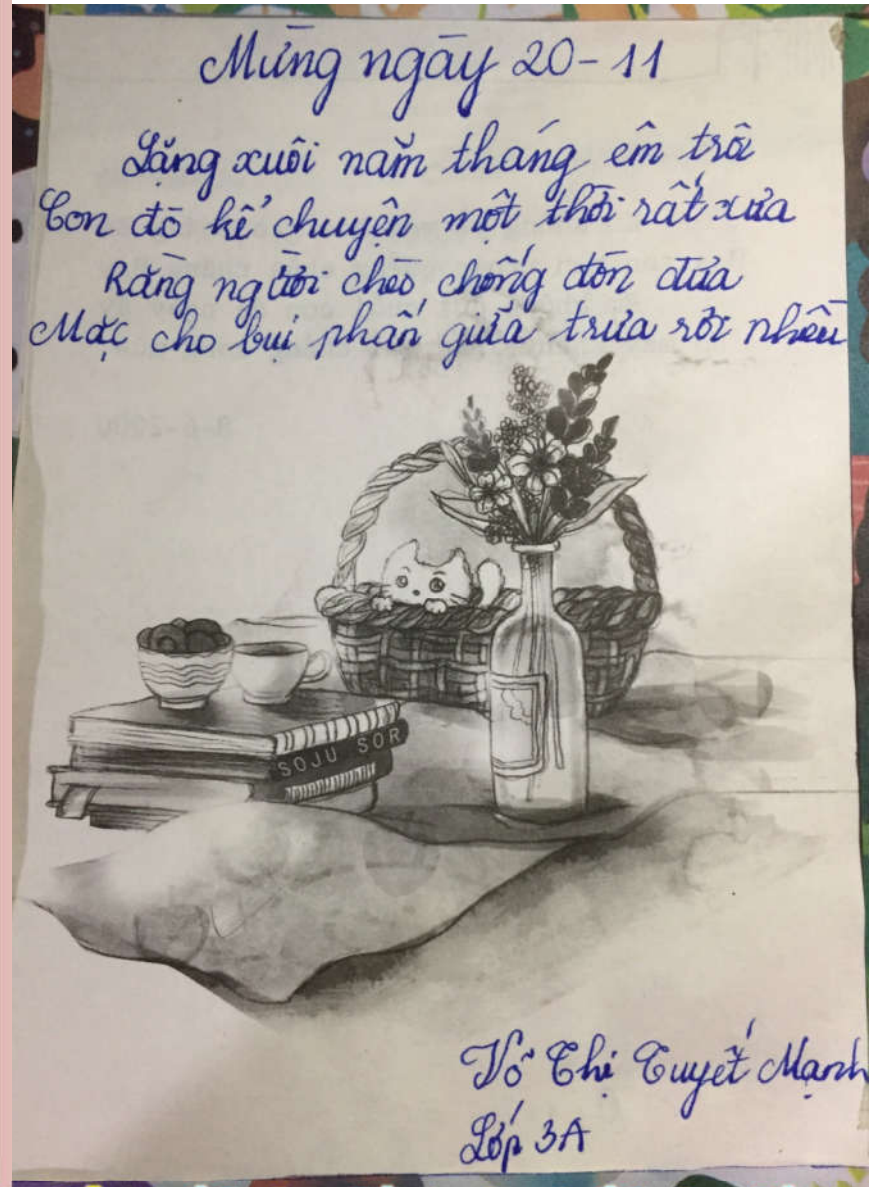 Mừng ngày 20-11
Lặng xuôi năm tháng êm trôi
Con đò kể chuyện một thời rất xưa
Rằng người chèo chống đón đưa
Mặc cho bụi phấn giữa trưa rơi nhiều
SOJU SOR
Võ Thị Tuyết Mạnh
Lớp 3A